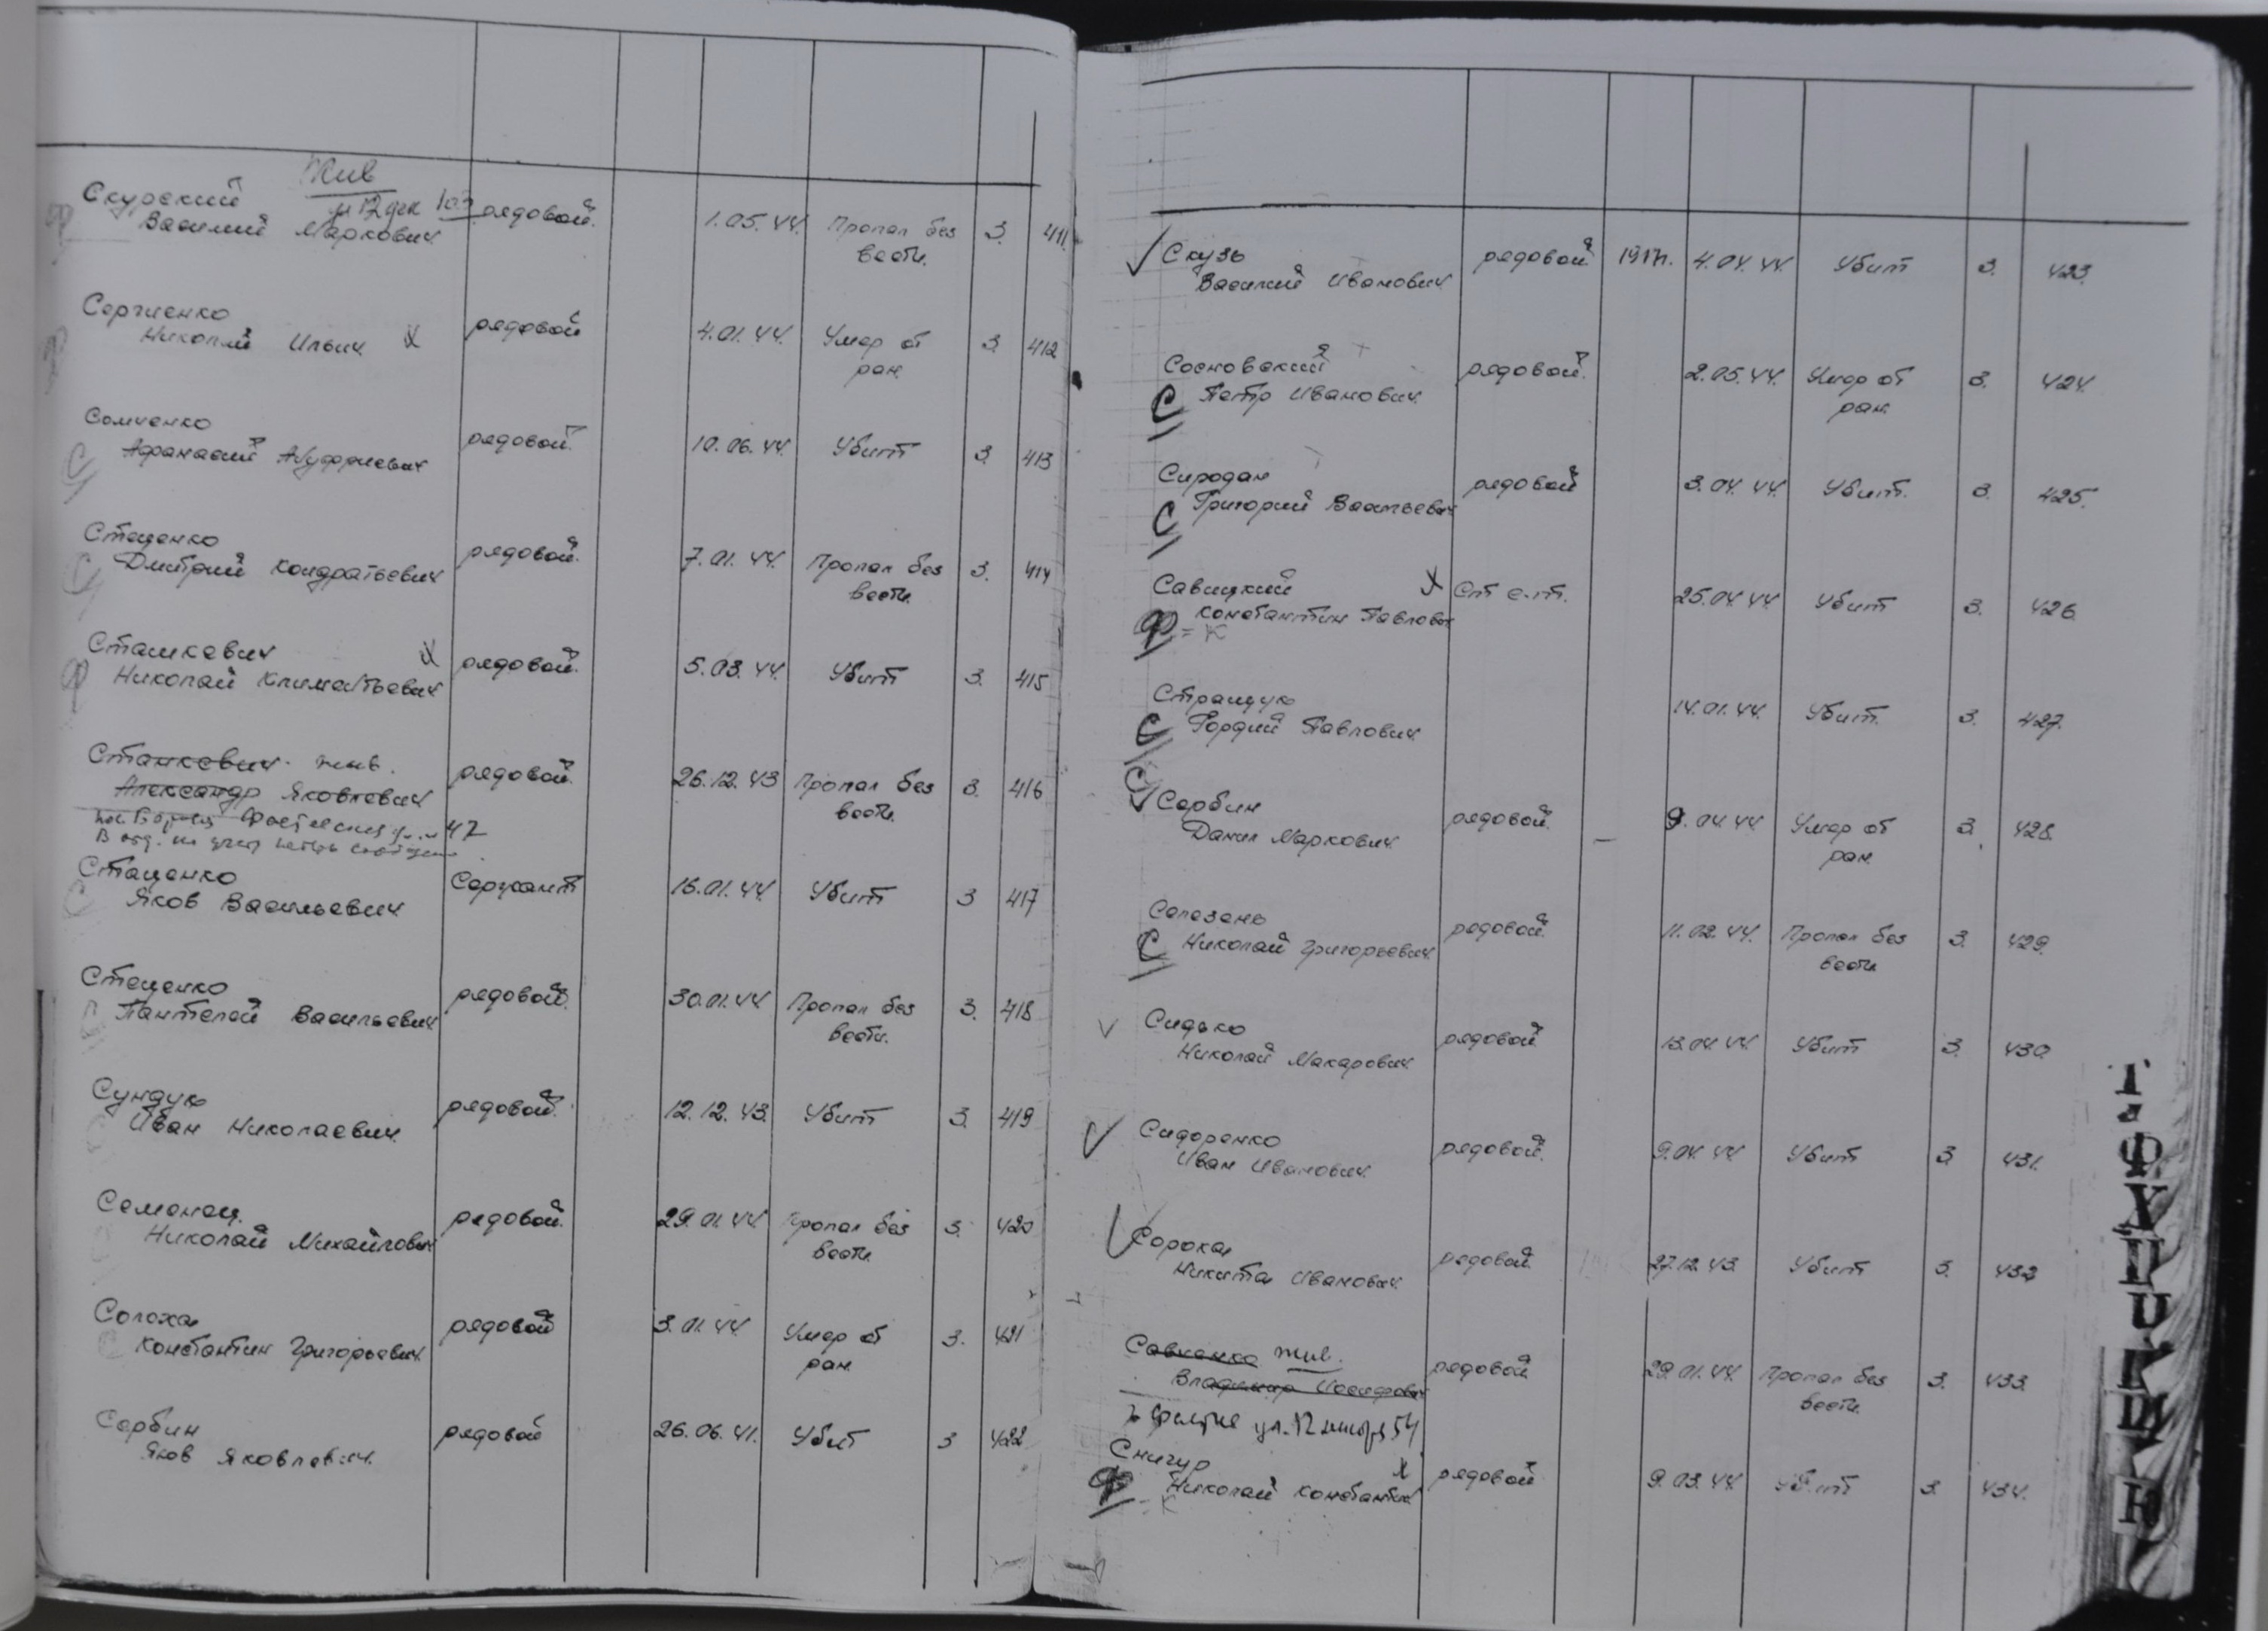 Жив
Скурский рядовой. 1.05.44. Пропал без 3. 411.
Василий Маркович вести.
Сергиенко рядовой 4.01.44. Умер от 3. 412
Николай Ильич х ран.
Сомченко рядовой. 10.06.44. Убит 3. 413
С Афанасий Ануфриевич
Стеценко рядовой. 7.01.44. Пропал без 3. 414
С Дмитрий Кондратьевич вести.
Сташкевич х рядовой. 5.03.44. Убит 3. 415
Ф Николай Климентьевич
Станкевич. жив. рядовой. 26.12.43 Пропал без 3. 416
Александр Яковлевич вести.
47
Стаценко Сержант 16.01.44. Убит 3 417
С Яков Васильевич
Стеценко рядовой. 30.01.44 Пропал без 3. 418
С Пантелей Васильевич вести.
Сундук рядовой. 12.12.43. Убит 3. 419
Иван Николаевич
Семенец рядовой. 29.01.44 Пропал без 3. 420
Николай Михайлович вести.
Солоха рядовой 3.01.44. Умер от 3. 421
С Константин Григорьевич. ран.
Сербин рядовой 26.06.41. Убит 3 422
Яков Яковлевич.
Скузь рядовой 1917г. 4.04.44. Убит 3. 423.
Василий Иванович
Сосновский рядовой. 2.05.44. Умер от 3. 424.
С Петр Иванович ран.
Сиродан рядовой 3.04.44. Убит. 3. 425.
С Григорий Васильевич
Савицкий х Ст с-т. 25.04.44 Убит 3. 426
Ф = К Константин Павлович
Стращук 14.01.44. Убит. 3. 427.
С Гордий Павлович.
С
Сербин рядовой. — 9.04.44 Умер от 3. 428.
Данил Маркович ран.
Селезень рядовой. 11.02.44. Пропал без 3. 429.
С Николай Григорьевич вести
Сидько рядовой 13.04.44. Убит 3. 430.
Николай Макарович.
Сидоренко рядовой. 9.04.44. Убит 3. 431.
Иван Иванович.
Сорока рядовой. 27.12.43. Убит 3. 432
Никита Иванович.
Савченко жив. рядовой 29.01.44. Пропал без 3. 433.
Владимир Иосифович вести.
Снигур х рядовой 9.03.44 Убит 3. 434.
Ф = К Николай Константин
Т
Ф
Х
Ц